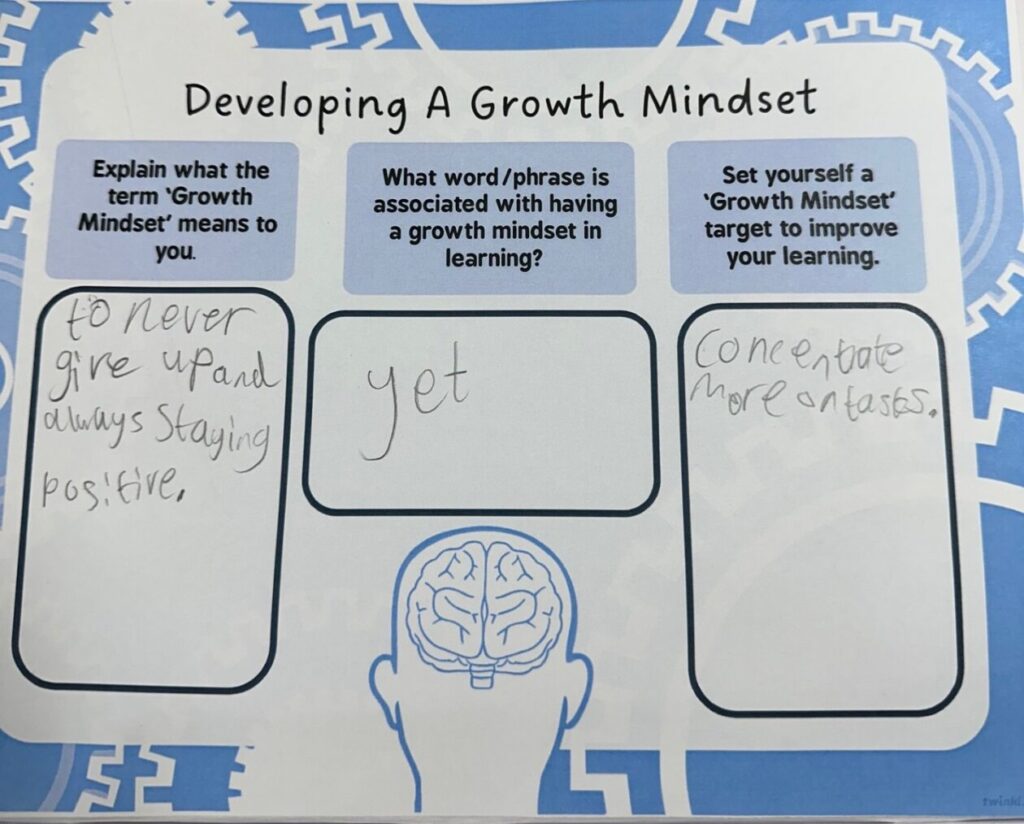 Developing A Growth Mindset
Explain what the
term 'Growth
Mindset' means to
you.
to never
give up and
always staying
positive.
What word/phrase is
associated with having
a growth mindset in
learning?
yet
Set yourself a
'Growth Mindset'
target to improve
your learning.
Concentrate
more on tasks.